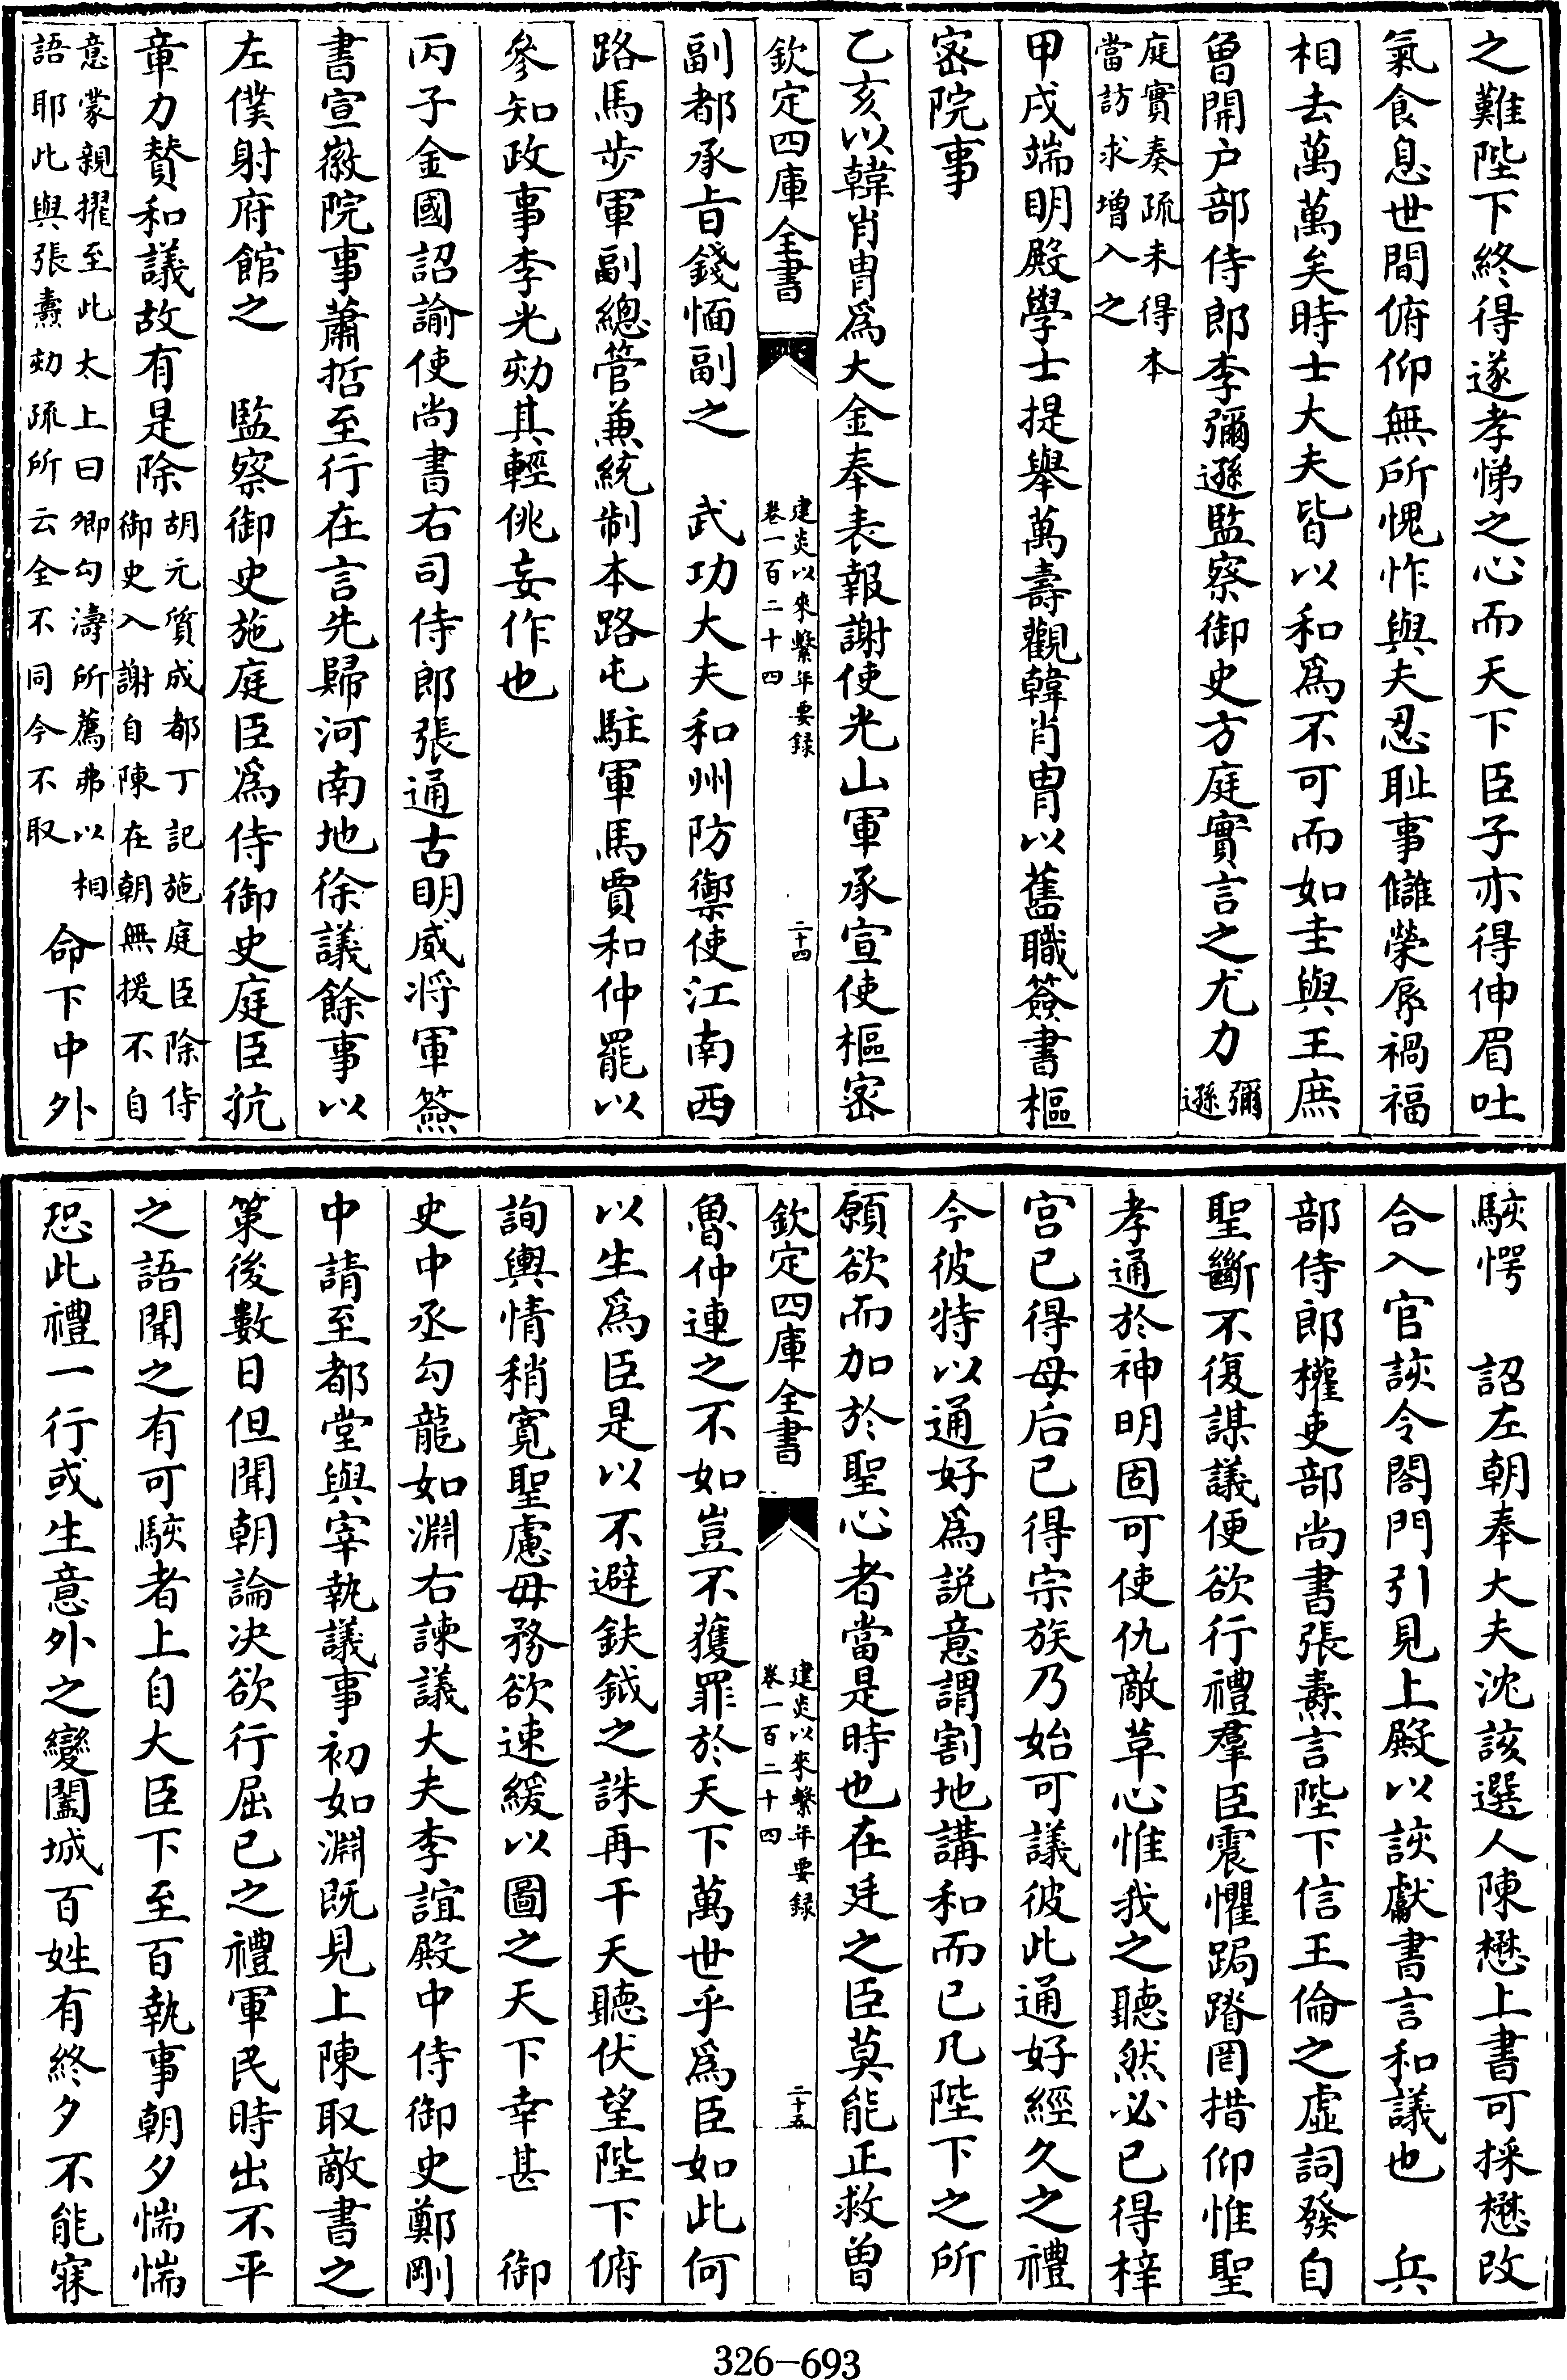 之難陛下終得遂孝悌之心而天下臣子亦得伸眉吐
氣食息世間俯仰無所愧怍與夫忍恥事讎榮辱禍福
相去萬萬矣時士大夫皆以和為不可而如圭與王庶
曾開户部侍郎李彌遜監察御史方庭實言之尤力彌遜
庭實奏疏未得本
當訪求增入之
甲戌端明殿學士提舉萬壽觀韓肖胄以舊職簽書樞
密院事
乙亥以韓肖胄為大金奉表報謝使光山軍承宣使樞密
欽定四庫全書
建炎以來繫年要録
卷一百二十四
二十四
副都承旨錢愐副之　武功大夫和州防禦使江南西
路馬步軍副總管兼統制本路屯駐軍馬賈和仲罷以
參知政事李光劾其輕佻妄作也
丙子金國詔諭使尚書右司侍郎張通古明威将軍簽
書宣徽院事蕭哲至行在言先歸河南地徐議餘事以
左僕射府館之　監察御史施庭臣為侍御史庭臣抗
章力贊和議故有是除
胡元質成都丁記施庭臣除侍
御史入謝自陳在朝無援不自
意蒙親擢至此太上曰卿勾濤所薦弗以相
語耶此與張燾劾疏所云全不同今不取
命下中外
駭愕　詔左朝奉大夫沈該選人陳懋上書可採懋改
合入官該令閤門引見上殿以該獻書言和議也　兵
部侍郎權吏部尚書張燾言陛下信王倫之虛詞發自
聖斷不復謀議便欲行禮羣臣震懼跼蹐罔措仰惟聖
孝通於神明固可使仇敵革心惟我之聽然必已得梓
宫已得母后已得宗族乃始可議彼此通好經久之禮
今彼特以通好為説意謂割地講和而已凡陛下之所
願欲而加於聖心者當是時也在廷之臣莫能正救曾
欽定四庫全書
建炎以來繫年要録
卷一百二十四
二十五
魯仲連之不如豈不獲罪於天下萬世乎為臣如此何
以生為臣是以不避鈇鉞之誅再干天聽伏望陛下俯
詢輿情稍寬聖慮毋務欲速緩以圖之天下幸甚　御
史中丞勾龍如淵右諫議大夫李誼殿中侍御史鄭剛
中請至都堂與宰執議事初如淵既見上陳取敵書之
策後數日但聞朝論决欲行屈已之禮軍民時出不平
之語聞之有可駭者上自大臣下至百執事朝夕惴惴
恐此禮一行或生意外之變闔城百姓有終夕不能寐
326-693